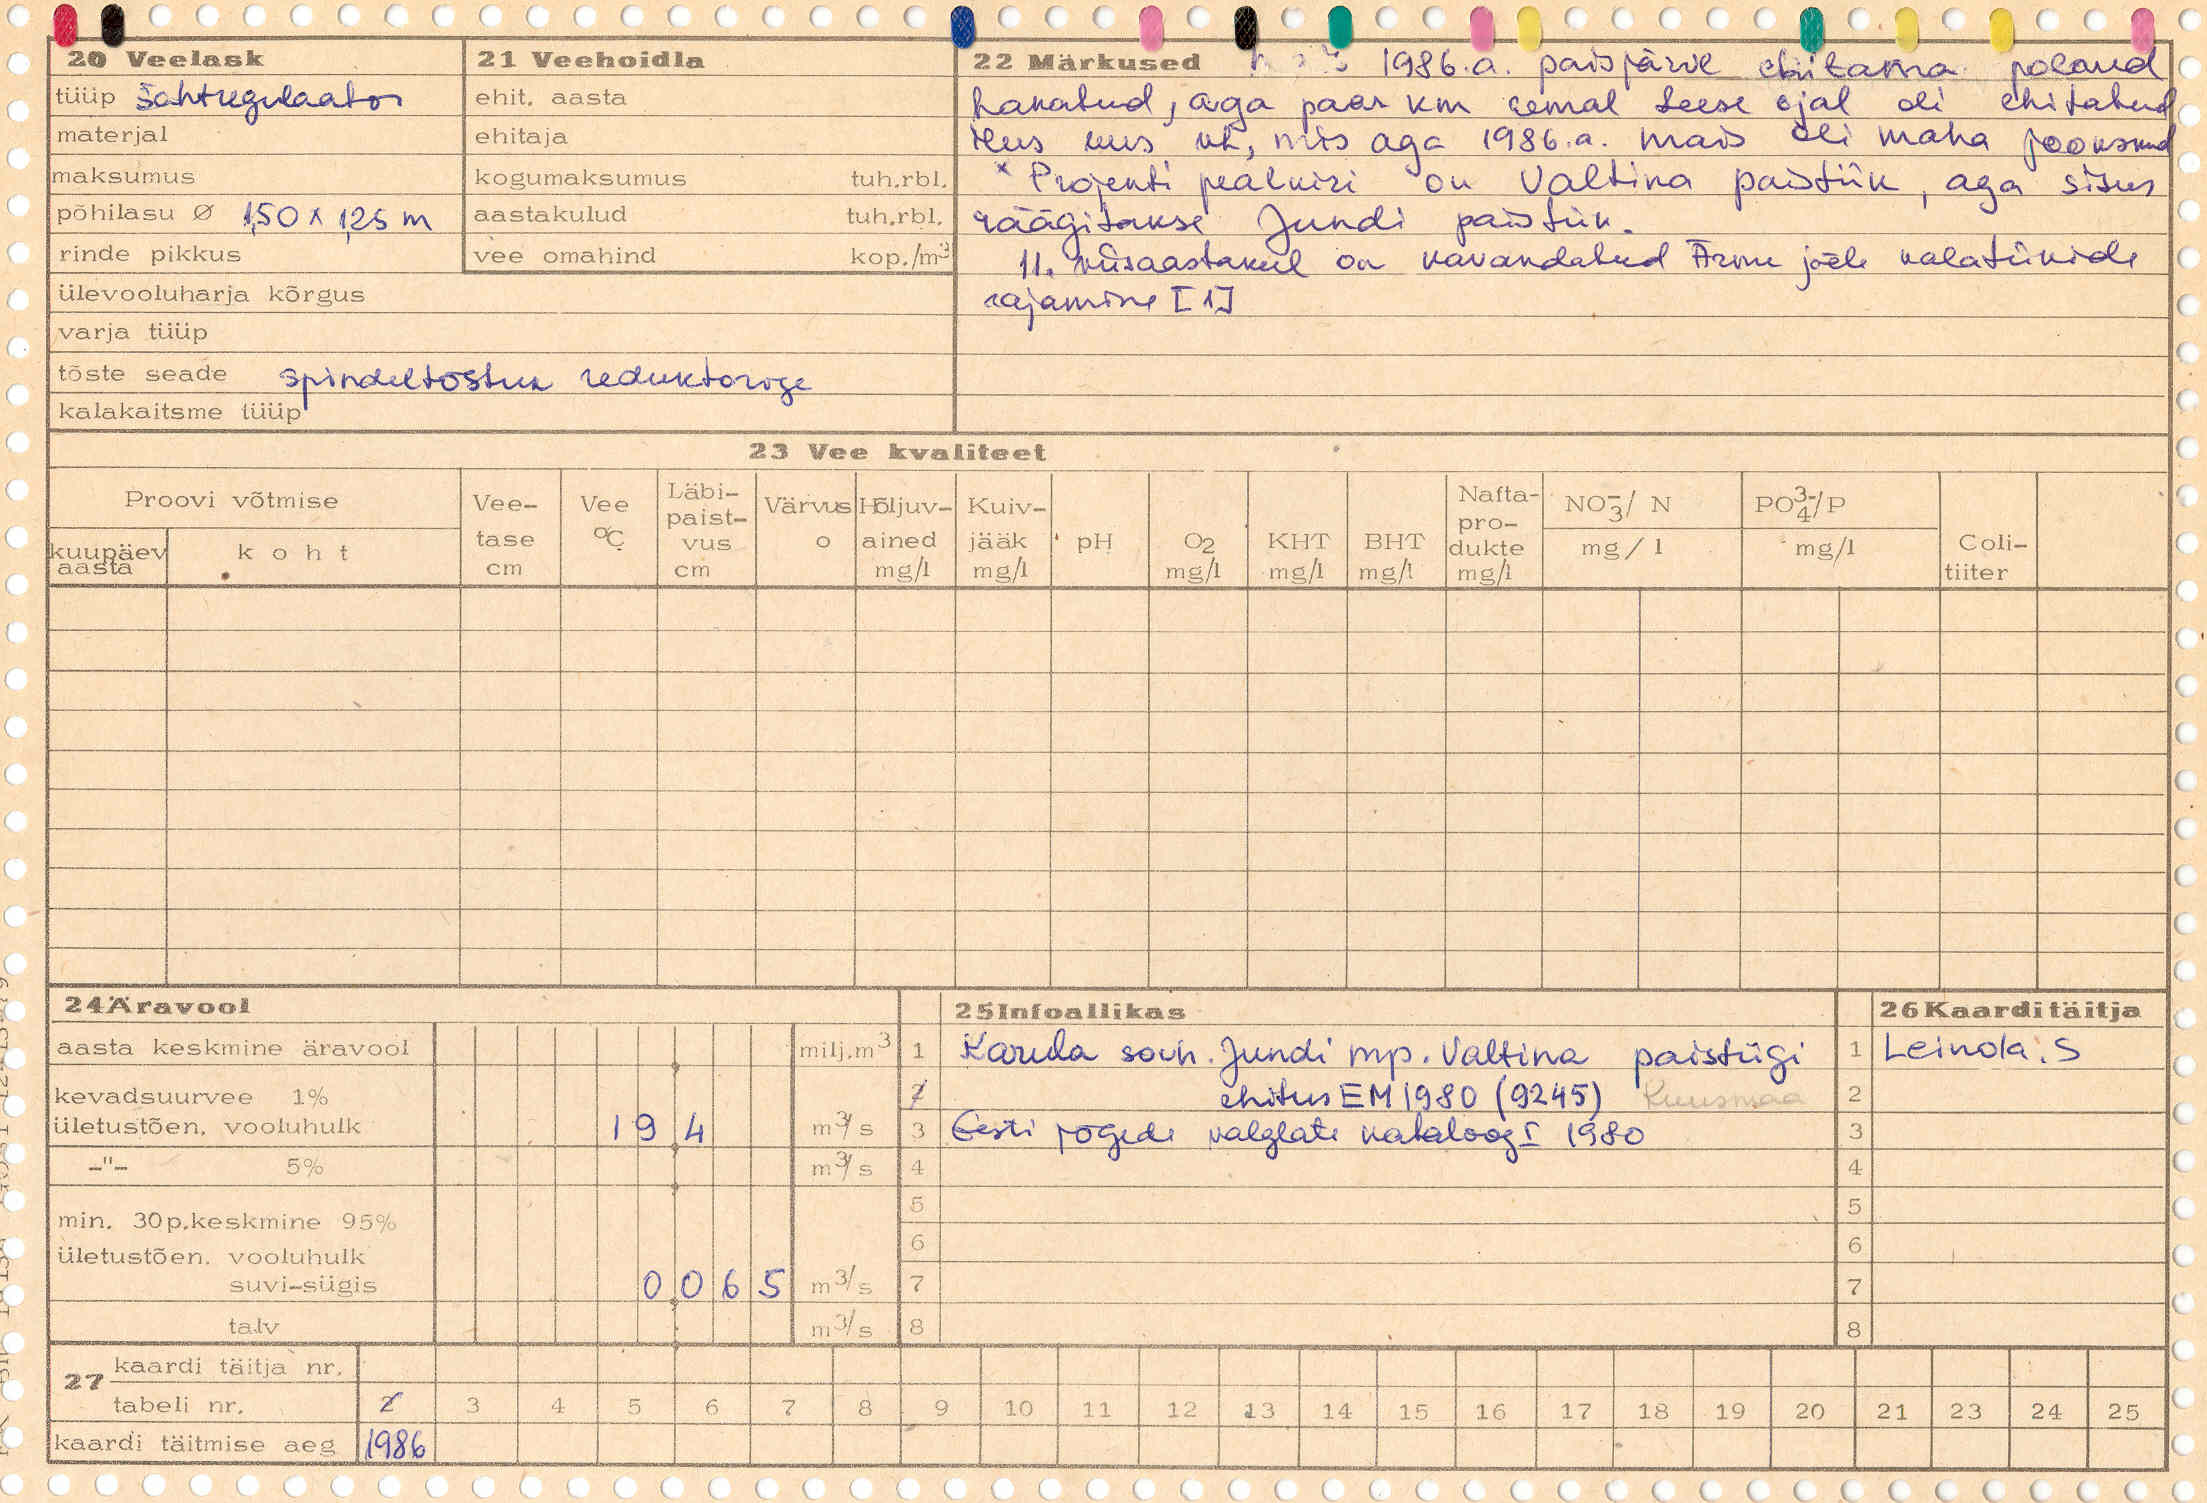 20 Veelask
tüüp šahtregulaator
materjal
maksumus
põhilasu Ø 1,50 x 1,25 m
rinde pikkus
ülevooluharja kõrgus
varja tüüp
tõste seade spindeltõstuk reduktoriga
kalakaitsme tüüp
21 Veehoidla
ehit. aasta
ehitaja
kogumaksumus tuh.rbl.
aastakulud tuh.rbl.
vee omahind kop./m³
22 Märkused 1986.a. paisjärve ehitama polnud
hakatud, aga paar km eemal teese ojal oli ehitatud
ilus uus vh, mis aga 1986.a. mais oli maha jooksnud
x Projekti pealkiri on Valtina paistiik, aga sisus
räägitakse Jundi paistiik.
11. viisaastakul on kavandatud Ärma jõele kalatiikide
rajamine [1]
23 Vee kvaliteet
Proovi võtmise
kuupäev aasta
koht
Vee-tase cm
Vee °C
Läbi-paist-vus cm
Värvus o
Hõljuv-ained mg/l
Kuiv-jääk mg/l
pH
O2 mg/l
KHT mg/l
BHT mg/l
Nafta-pro-dukte mg/l
NO3-/ N mg/l
PO4 3-/P mg/l
Coli-tiiter
24 Äravool
aasta keskmine äravool milj.m³
kevadsuurvee 1%
ületustõen. vooluhulk 19 4 m³/s
-"- 5% m³/s
min. 30p.keskmine 95%
ületustõen. vooluhulk
suvi-sügis 0 0 6 5 m³/s
talv m³/s
25 Infoallikas
1 Karula sovh. Jundi mp. Valtina paistiigi
2 ehitus EM 1980 (9245) Kuusmaa
3 Eesti jõgede valglate kataloog I 1980
4
5
6
7
8
26 Kaarditäitja
1 Leinola. S
2
3
4
5
6
7
8
27 kaardi täitja nr.
tabeli nr. 2 3 4 5 6 7 8 9 10 11 12 13 14 15 16 17 18 19 20 21 23 24 25
kaardi täitmise aeg 1986